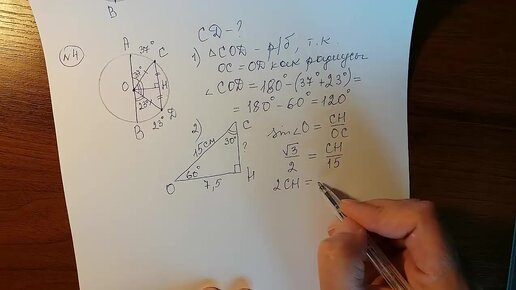 B
№4
A
37°
C
O
H
23°
23°
D
B
CD - ?
1) △COD - р/б, т.к.
OC = OD как радиусы
∠COD = 180° - (37° + 23°) =
= 180° - 60° = 120°
2)
C
15см
30°
?
60°
O
7,5
H
sin∠O = CH/OC
√3/2 = CH/15
2CH =